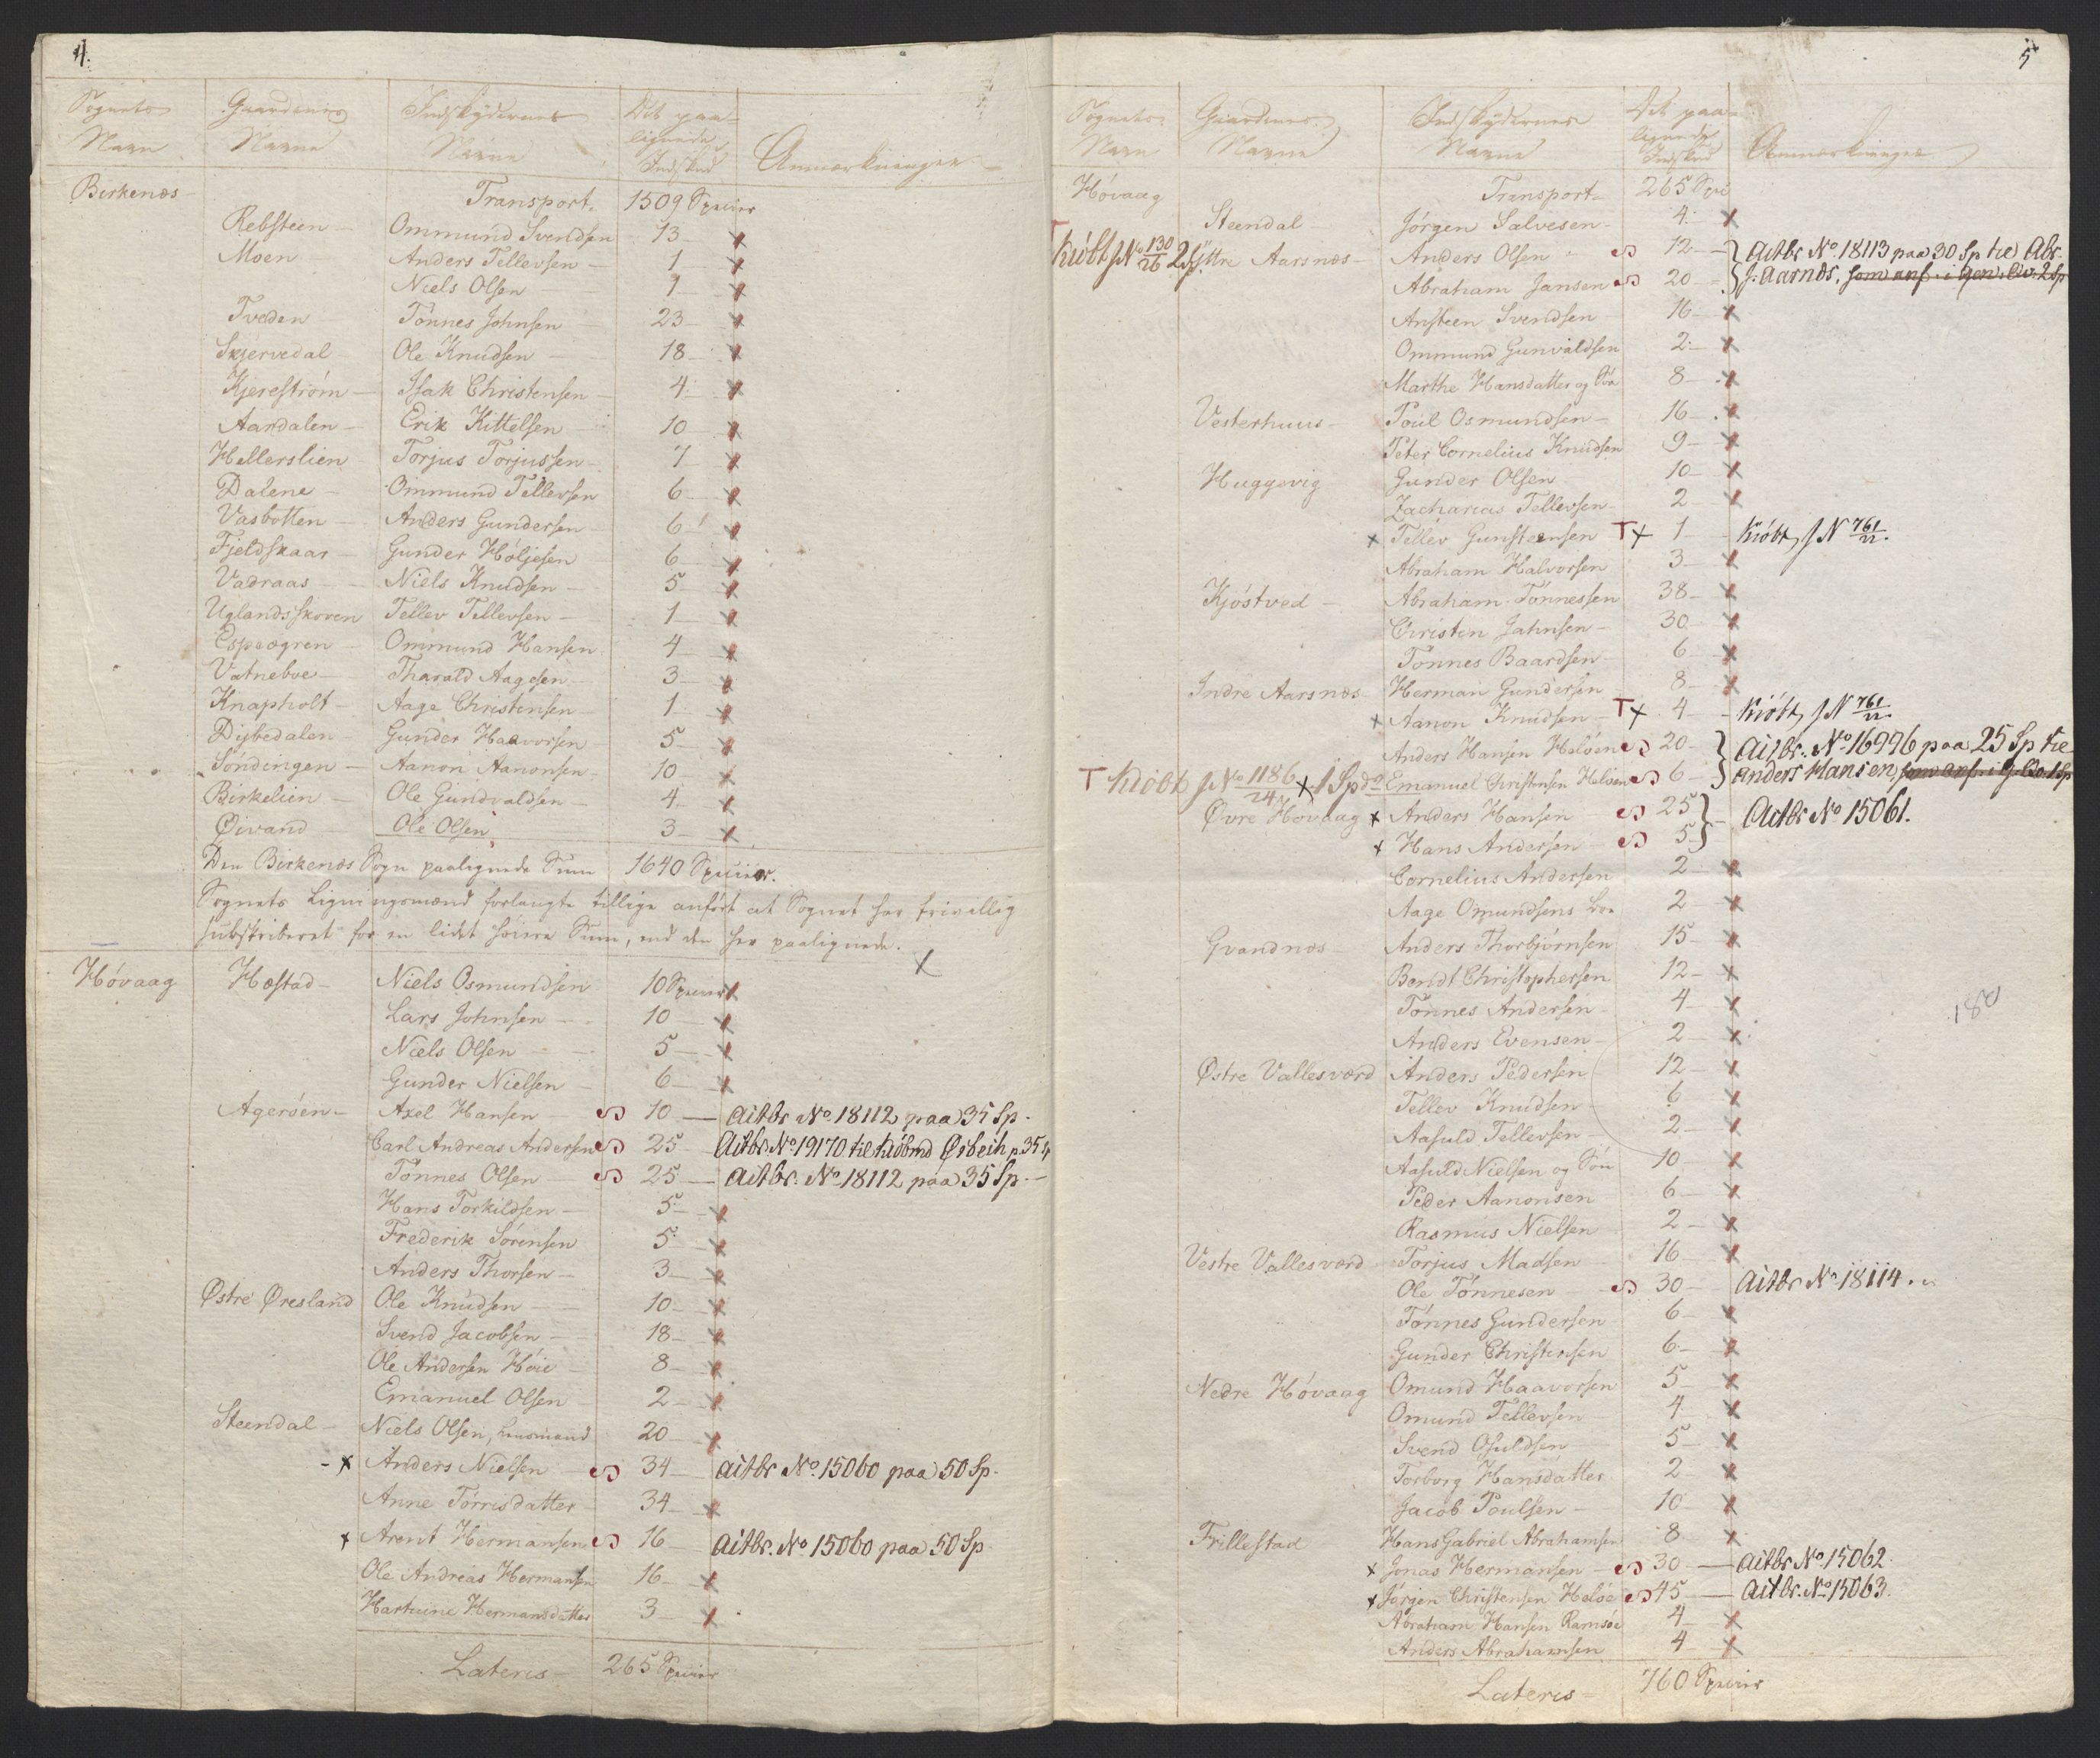 4.
Sognets Navn Gaardenes Navne Indskydernes Navne Det paalignede Indskud Anmærkninger
Birkenæs Transport 1509 Specier
Rebsteen Ommund Svendsen 13
Moen Anders Tellevsen 1
Niels Olsen 1
Tveden Tönnes Johnsen 23
Skjervedal Ole Knudsen 18
Kjereström Isak Christensen 4
Aardalen Erik Kittelsen 10
Hellerslien Torjus Torjussen 7
Dalene Ommund Tellevsen 6
Vasbotten Anders Gundersen 6
Fjeldskaar Gunder Höljesen 6
Vadraas Niels Knudsen 5
Uglandsskoven Tellev Tellevsen 1
Espeogren Ommund Hansen 4
Vatneboe Tharald Aagesen 3
Knapholt Aage Christensen 1
Dybedalen Gunder Haavorsen 5
Söndingen Aanon Aanonsen 10
Birkelien Ole Gundvaldsen 4
Øivand Ole Olsen 3
Den Birkenæs Sogn paalignede Sum 1640 Specier.
Sognets Ligningsmænd forlangte tillige anfört at Sognet har frivillig
subskriberet for en lidet höiere Sum, end den her paalignede.
Hövaag Hæstad Niels Osmundsen 10 Specier
Lars Johnsen 10
Niels Olsen 5
Gunder Nielsen 6
Ageröen Axel Hansen 10 Actbr No 18112 paa 35 Sp.
Carl Andreas Andersen 25 Actbr No 19170 til Kiöbmd p. 35
Tönnes Olsen 25 Actbr. No 18112 paa 35 Sp.
Hans Torkildsen 5
Frederik Sörensen 5
Anders Thorsen 3
Østre Øresland Ole Knudsen 10
Svend Jacobsen 18
Ole Andersen Höie 8
Emanuel Olsen 2
Steendal Niels Olsen, huusmand 20
x Anders Nielsen 34 Actbr No. 15060 paa 50 Sp.
Anne Torrisdatter 34
x Arent Hermansen 16 Actbr. No. 15060 paa 50 Sp.
Ole Andreas Hermansen 16
Hartvine Hermansdatter 3
Lateris 265 Specier
5
Sognets Navn Gaardenes Navne Indskydernes Navne Det paalignede Indskud Anmærkninger
Hövaag Transport 265 Spe
Steendal Jörgen Salvesen 4
Kiöbt J No 130/26 2 Sp Yttre Aarsnæs Anders Olsen 12 Actbr No. 18113 paa 30 Sp til Abr.
Abraham Jansen 20 J. Aarnæs, som anf. i Gen. Liv. 2 Sp
Ansteen Svendsen 16
Ommund Gunvaldsen 2
Marthe Hansdatter og Sön 8
Vesterhuus Poul Osmundsen 16
Peter Cornelius Knudsen 9
Huggevig Gunder Olsen 10
Zacharias Tellevsen 2
x Tellev Gunsteensen T x 1 Kiöbt J N 761/22.
Abraham Halvorsen 3
Kjöstved Abraham Tönnessen 38
Christen Jahnsen 30
Tönnes Baardsen 6
Indre Aarsnæs Herman Gundersen 8
x Aanon Knudsen T x 4 Kiöbt J N 761/22.
Anders Hansen Helöen 20 Actbr. No 16996 paa 25 Sp til
T Kiöbt J No 1186/24 x 1 Sp do Emanuel Christensen Helöen 6 Anders Hansen,
Övre Hövaag x Anders Hansen 25 Actbr No 15061.
x Hans Andersen 5
Cornelius Andersen 2
Aage Omundsens 2
Gvandnæs Anders Thorbjörnsen 15
Bendt Christophersen 12
Tönnes Andersen 4
Anders Evensen 2
180
Østre Vallesværd Anders Pedersen 12
Tellev Knudsen 6
Aasuld Tellevsen 2
Aasuld Nielsen og Sön 10
Peder Aanonsen 6
Rasmus Nielsen 2
Vestre Vallesværd Torjus Madsen 16
Ole Tönnesen 30 Actbr No. 18114.
Tönnes Gundersen 6
Gunder Christensen 6
Nedre Hövaag Omund Haavorsen 5
Omund Tellevsen 4
Svend Osuldsen 5
Torborg Hansdatter 2
Jacob Poulsen 10
Frillestad Hans Gabriel Abrahamsen 8
x Jonas Hermansen 30 Actbr No. 15062.
x Jörgen Christensen Helöe 45 Actbr. No. 15063.
Abraham Hansen Ramsöe 4
Anders Abrahamsen 4
Lateris 760 Specier